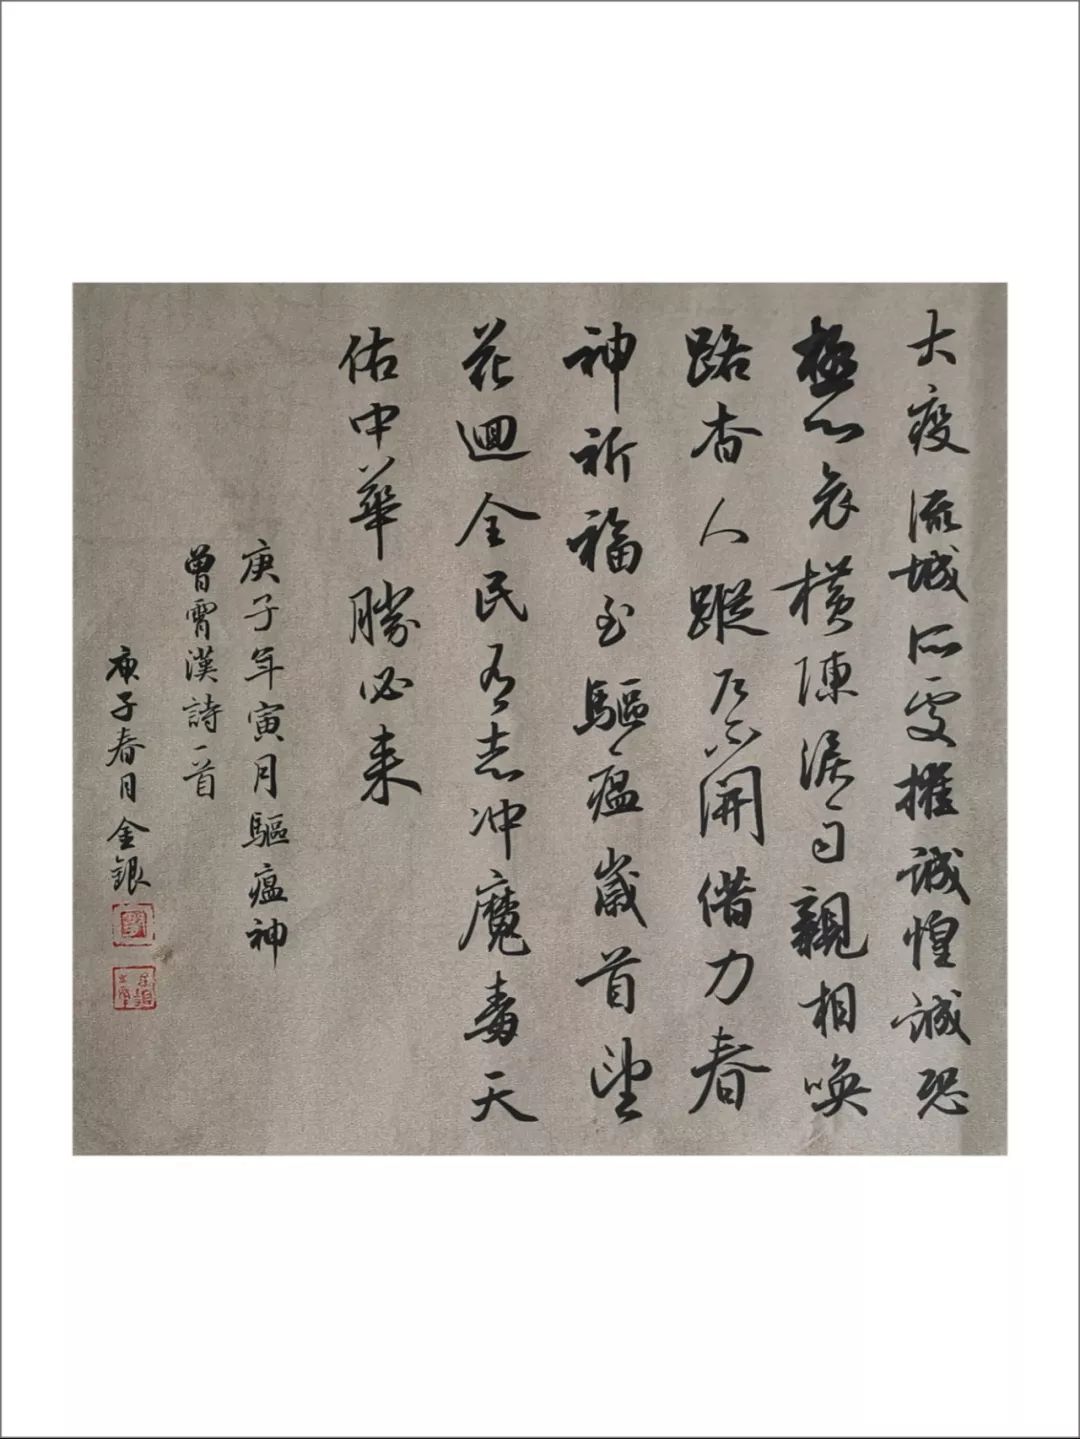 大疫流城受摧誠惶誠恐
極心哀橫陳淚目親相喚
路杳人蹤不開借力春
神祈福至驅瘟歲首望
花迴全民有志冲魔毒天
佑中華勝必来
庚子年寅月驅瘟神
曾霄漢詩一首
庚子春月金銀